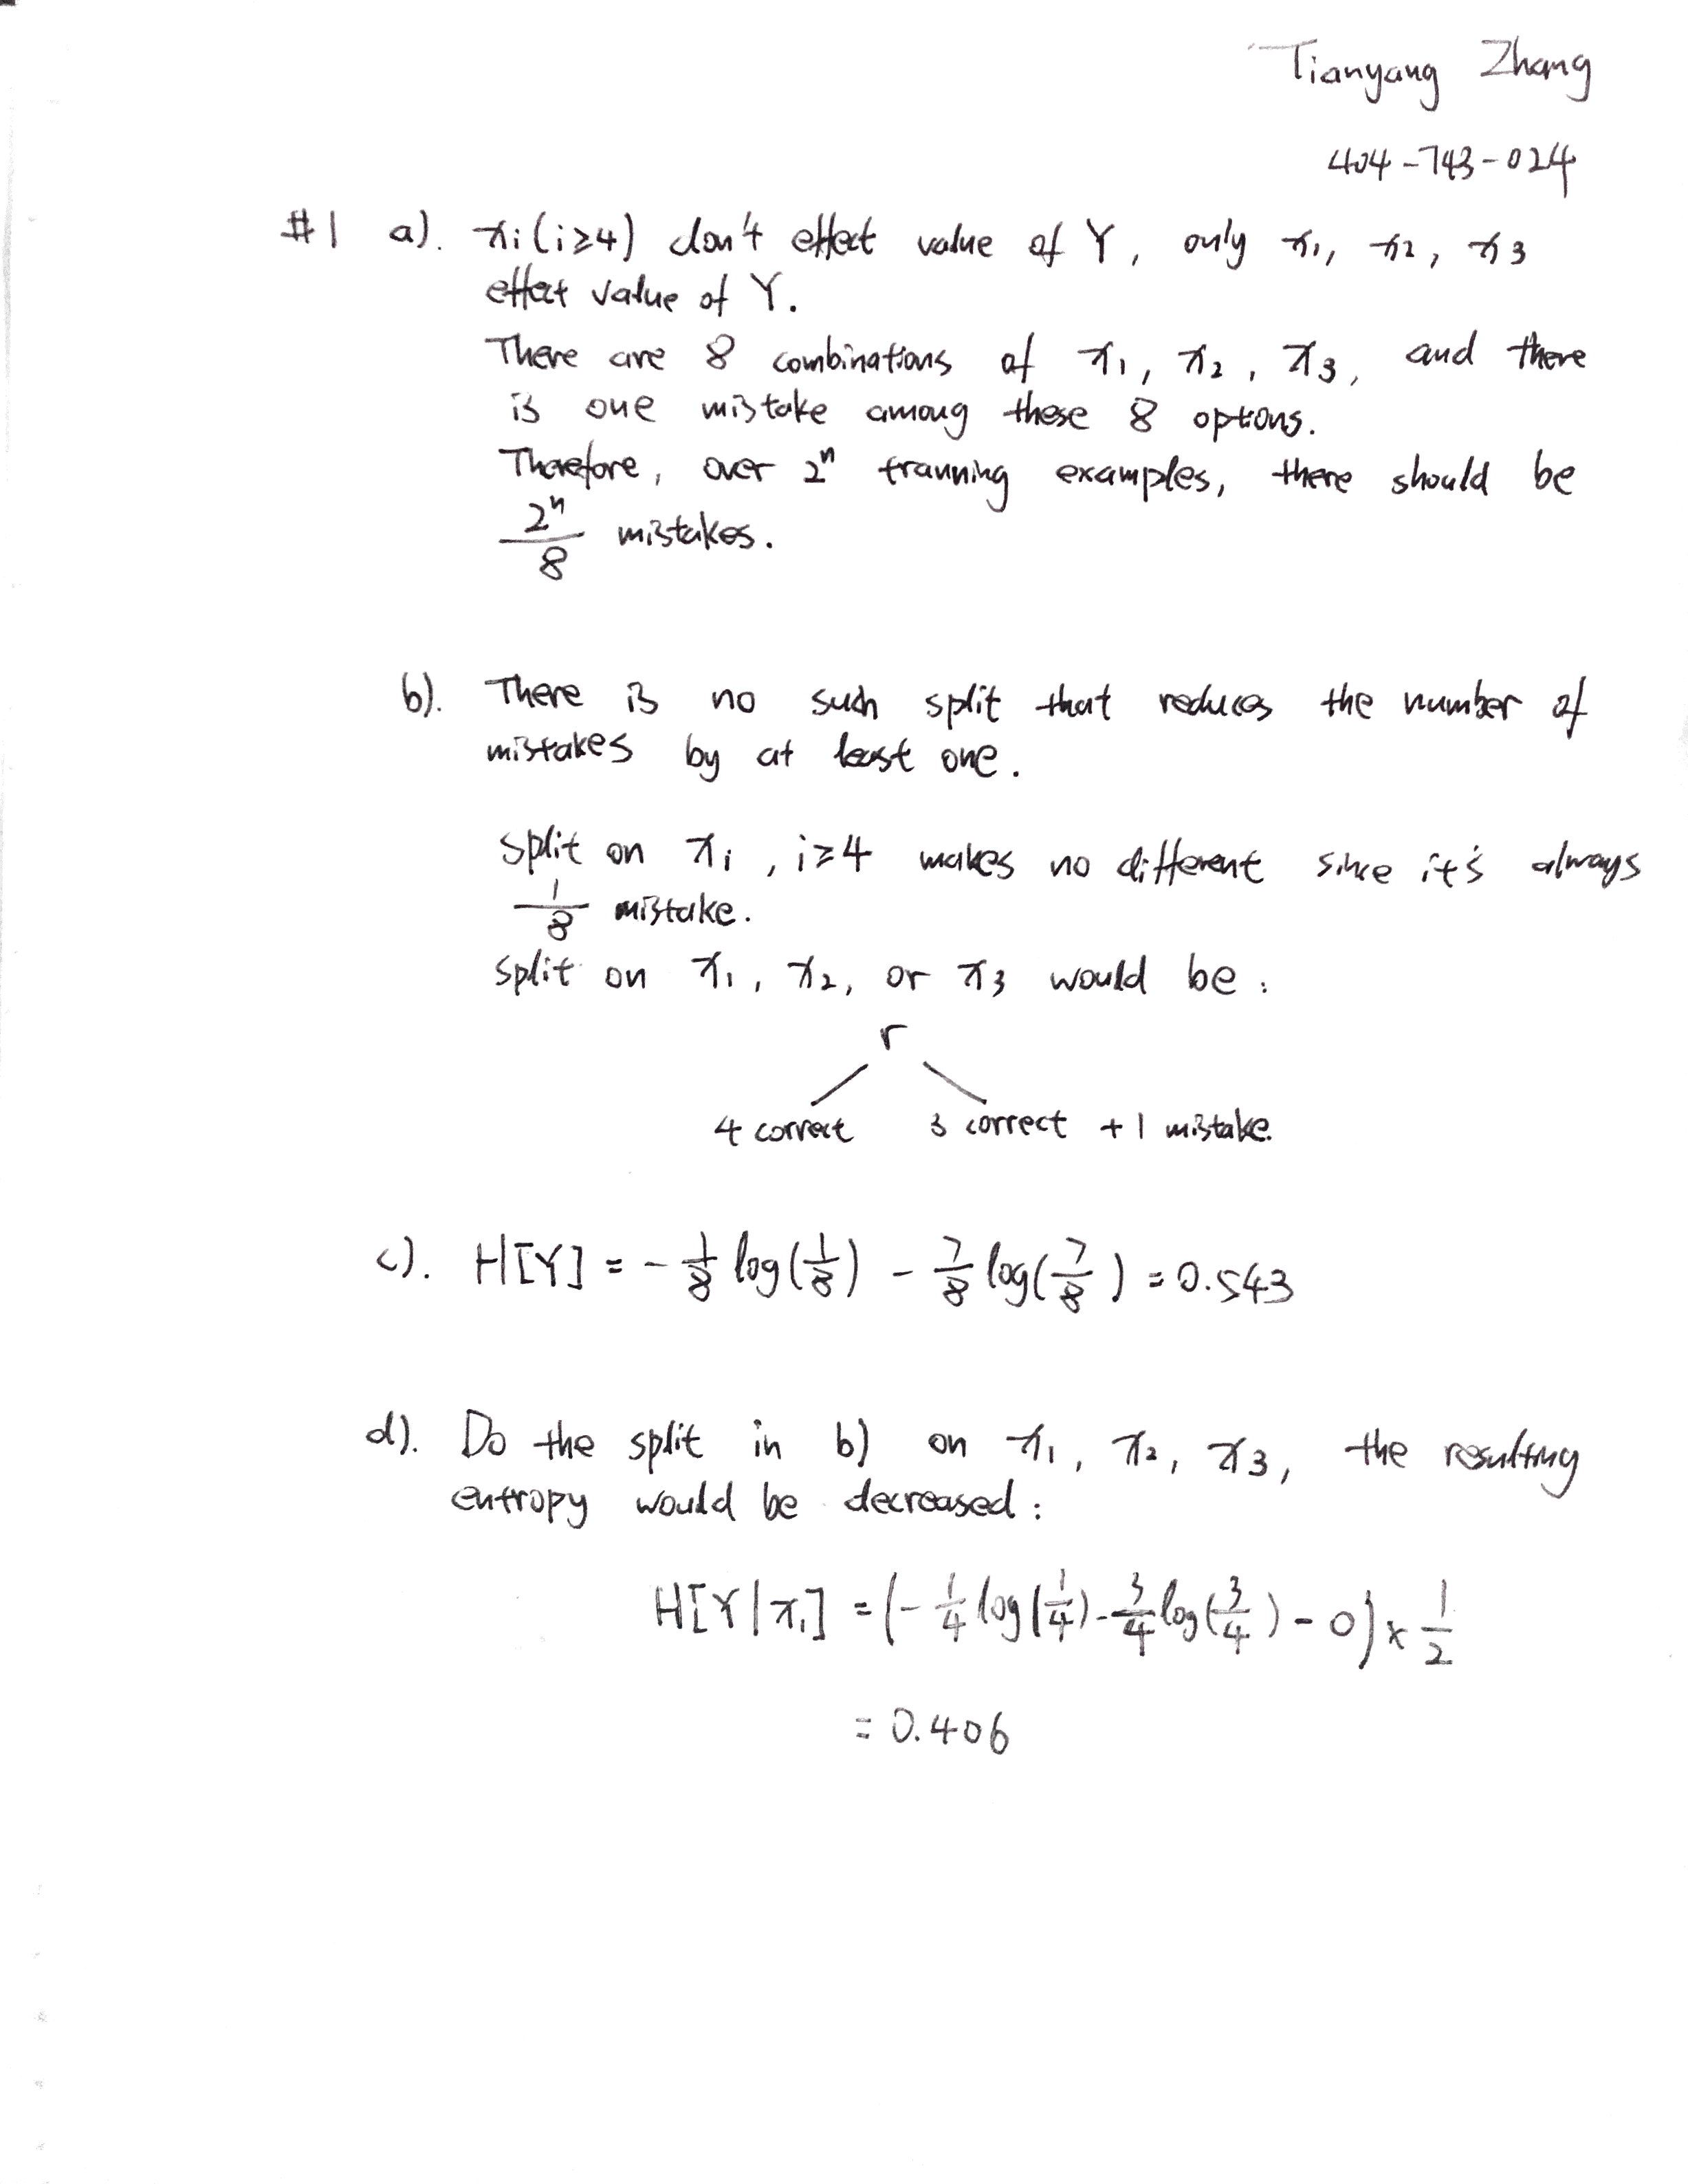 Tianyang Zhang
404-743-024
#1 a). xi (i≥4) don't effect value of Y, only x1, x2, x3
effect value of Y.
There are 8 combinations of x1, x2, x3, and there
is one mistake among these 8 options.
Therefore, over 2^n tranning examples, there should be
2^n/8 mistakes.
b). There is no such split that reduces the number of
mistakes by at least one.
split on xi, i≥4 makes no different since it's always
1/8 mistake.
split on x1, x2, or x3 would be:
r
4 correct 3 correct + 1 mistake.
c). H[Y] = - 1/8 log(1/8) - 7/8 log(7/8) = 0.543
d). Do the split in b) on x1, x2, x3, the resulting
entropy would be decreased:
H[Y|x1] = (- 1/4 log(1/4) - 3/4 log(3/4) - 0) × 1/2
= 0.406